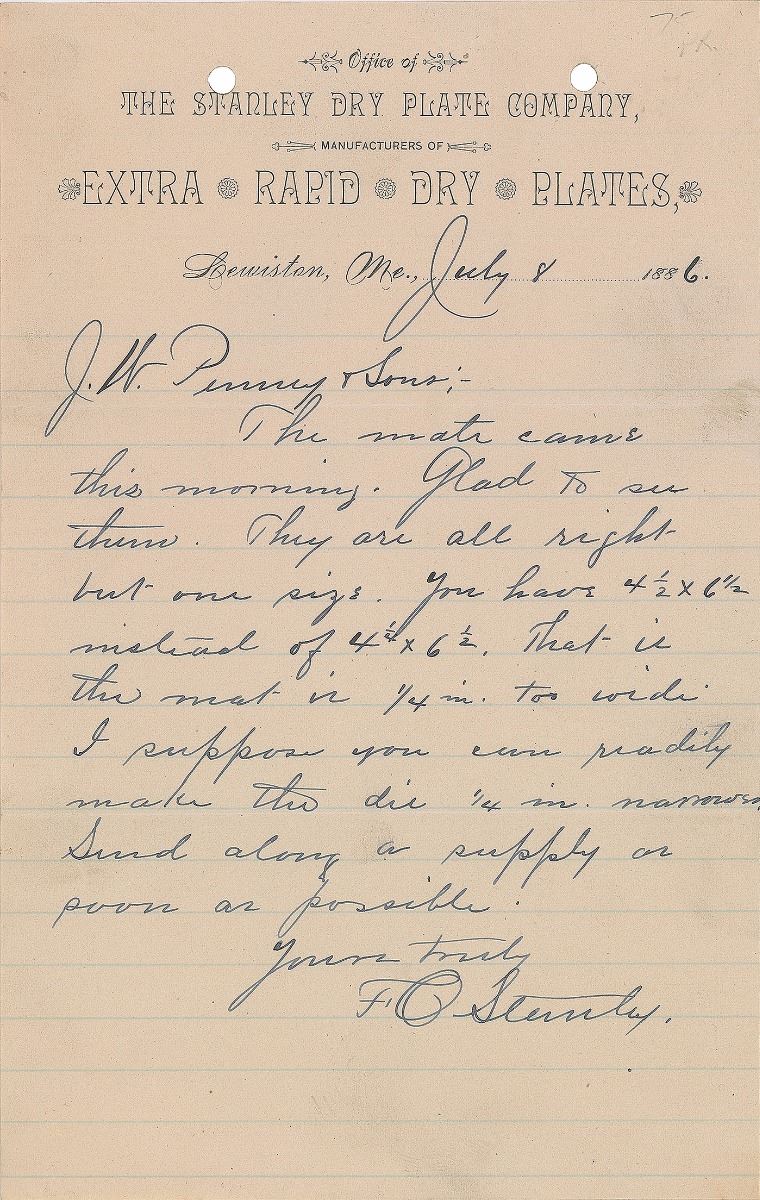 Office of
THE STANLEY DRY PLATE COMPANY,
MANUFACTURERS OF
EXTRA RAPID DRY PLATES,
Lewiston, Me., July 8 1886.
J. W. Penney & Sons;-
The mats came
this morning. Glad to see
them. They are all right
but one size. You have 4 1/2 x 6 1/2
instead of 4 1/4 x 6 1/2. That is
the mat is 1/4 in. too wide
I suppose you can readily
make the die 1/4 in. narrower.
Send along a supply as
soon as possible.
Yours truly
F. O. Stanley.